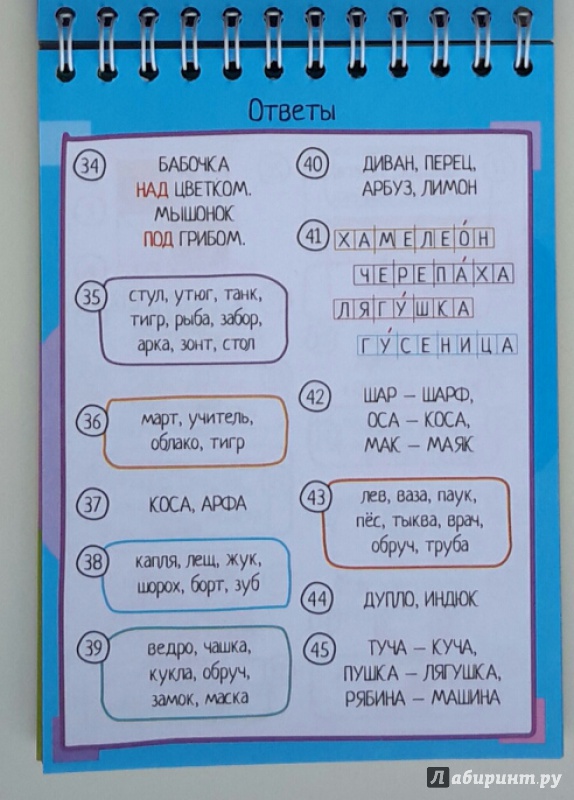 Ответы
34
БАБОЧКА
НАД ЦВЕТКОМ.
МЫШОНОК
ПОД ГРИБОМ.
35
стул, утюг, танк,
тигр, рыба, забор,
арка, зонт, стол
36
март, учитель,
облако, тигр
37
КОСА, АРФА
38
капля, лещ, жук,
шорох, борт, зуб
39
ведро, чашка,
кукла, обруч,
замок, маска
40
ДИВАН, ПЕРЕЦ,
АРБУЗ, ЛИМОН
41
ХАМЕЛЕО́Н
ЧЕРЕПА́ХА
ЛЯГУ́ШКА
ГУ́СЕНИЦА
42
ШАР – ШАРФ,
ОСА – КОСА,
МАК – МАЯК
43
лев, ваза, паук,
пёс, тыква, врач,
обруч, труба
44
ДУПЛО, ИНДЮК
45
ТУЧА – КУЧА,
ПУШКА – ЛЯГУШКА,
РЯБИНА – МАШИНА
Лабиринт.ру